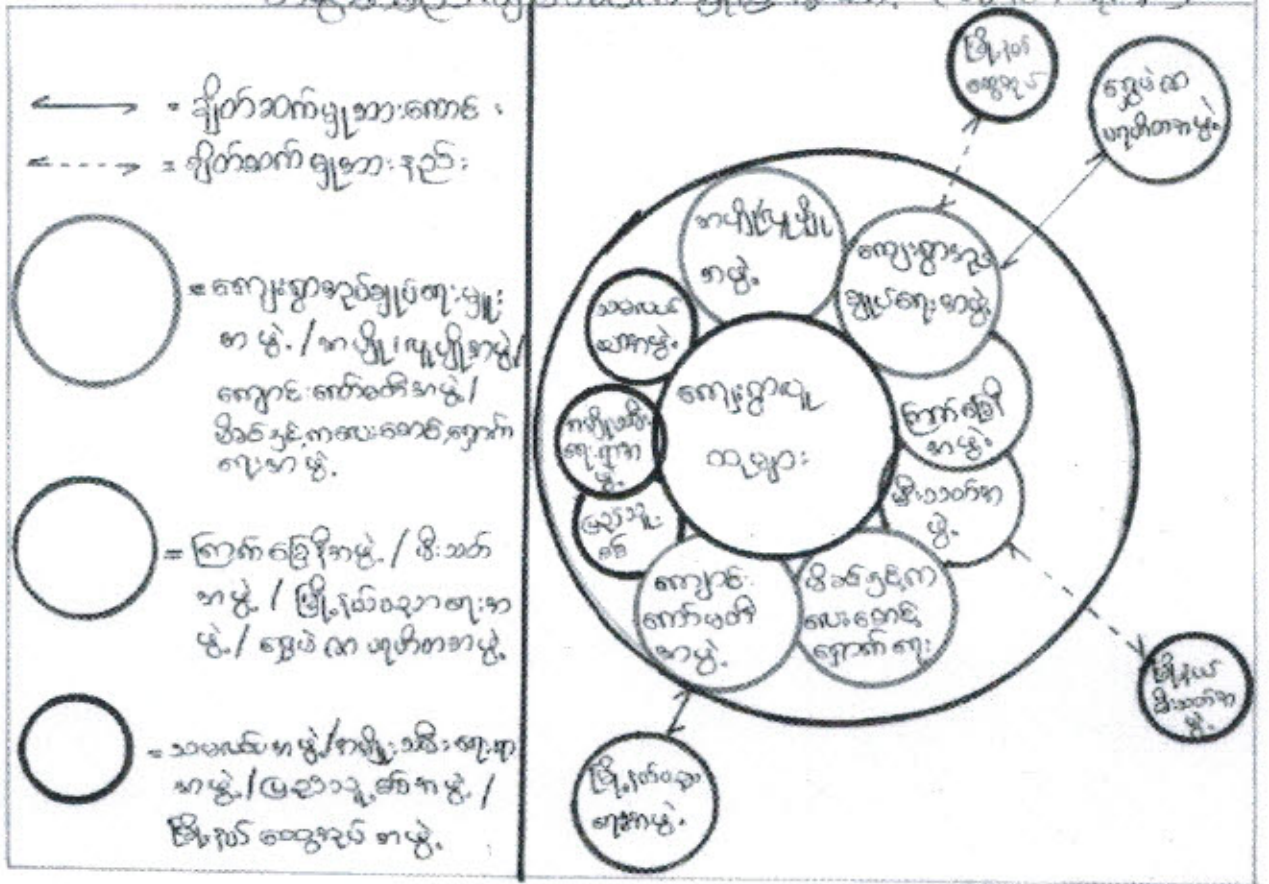 = ချိတ်ဆက်မှုအားကောင်း
= ချိတ်ဆက်မှုအားနည်း
= ကျေးရွာအုပ်ချုပ်ရေးမှူး
အဖွဲ့/အပျို/လူပျိုအဖွဲ့/
ကျောင်းကော်မတီအဖွဲ့/
မိခင်နှင့်ကလေးစောင့်ရှောက်
ရေးအဖွဲ့
= ကြက်ခြေနီအဖွဲ့/မီးသတ်
အဖွဲ့/မြို့နယ်ပညာရေးအ
ဖွဲ့/ရွှေဖဲလာ ပရဟိတအဖွဲ့
= သမဝါယမအဖွဲ့/အမျိုးသမီးရေးရာ
အဖွဲ့/ပြည်သူ့စစ်အဖွဲ့/
မြို့နယ်ထွေအုပ်အဖွဲ့
မြို့နယ်
ထွေအုပ်
ပရဟိတအဖွဲ့
အပျို/လူပျို
အဖွဲ့
ကျေးရွာအုပ်
ချုပ်ရေးအဖွဲ့
ကျေးရွာလူ
ထုများ
ကြက်ခြေနီ
အဖွဲ့
အမျိုးသမီး
ရေးရာအ
ဖွဲ့
မီးသတ်အ
ဖွဲ့
ပြည်သူ့
စစ်
ကျောင်း
ကော်မတီ
အဖွဲ့
မိခင်နှင့်က
လေးစောင့်
ရှောက်ရေး
မြို့နယ်
မီးသတ်အ
ဖွဲ့
မြို့နယ်ပညာ
ရေးအဖွဲ့